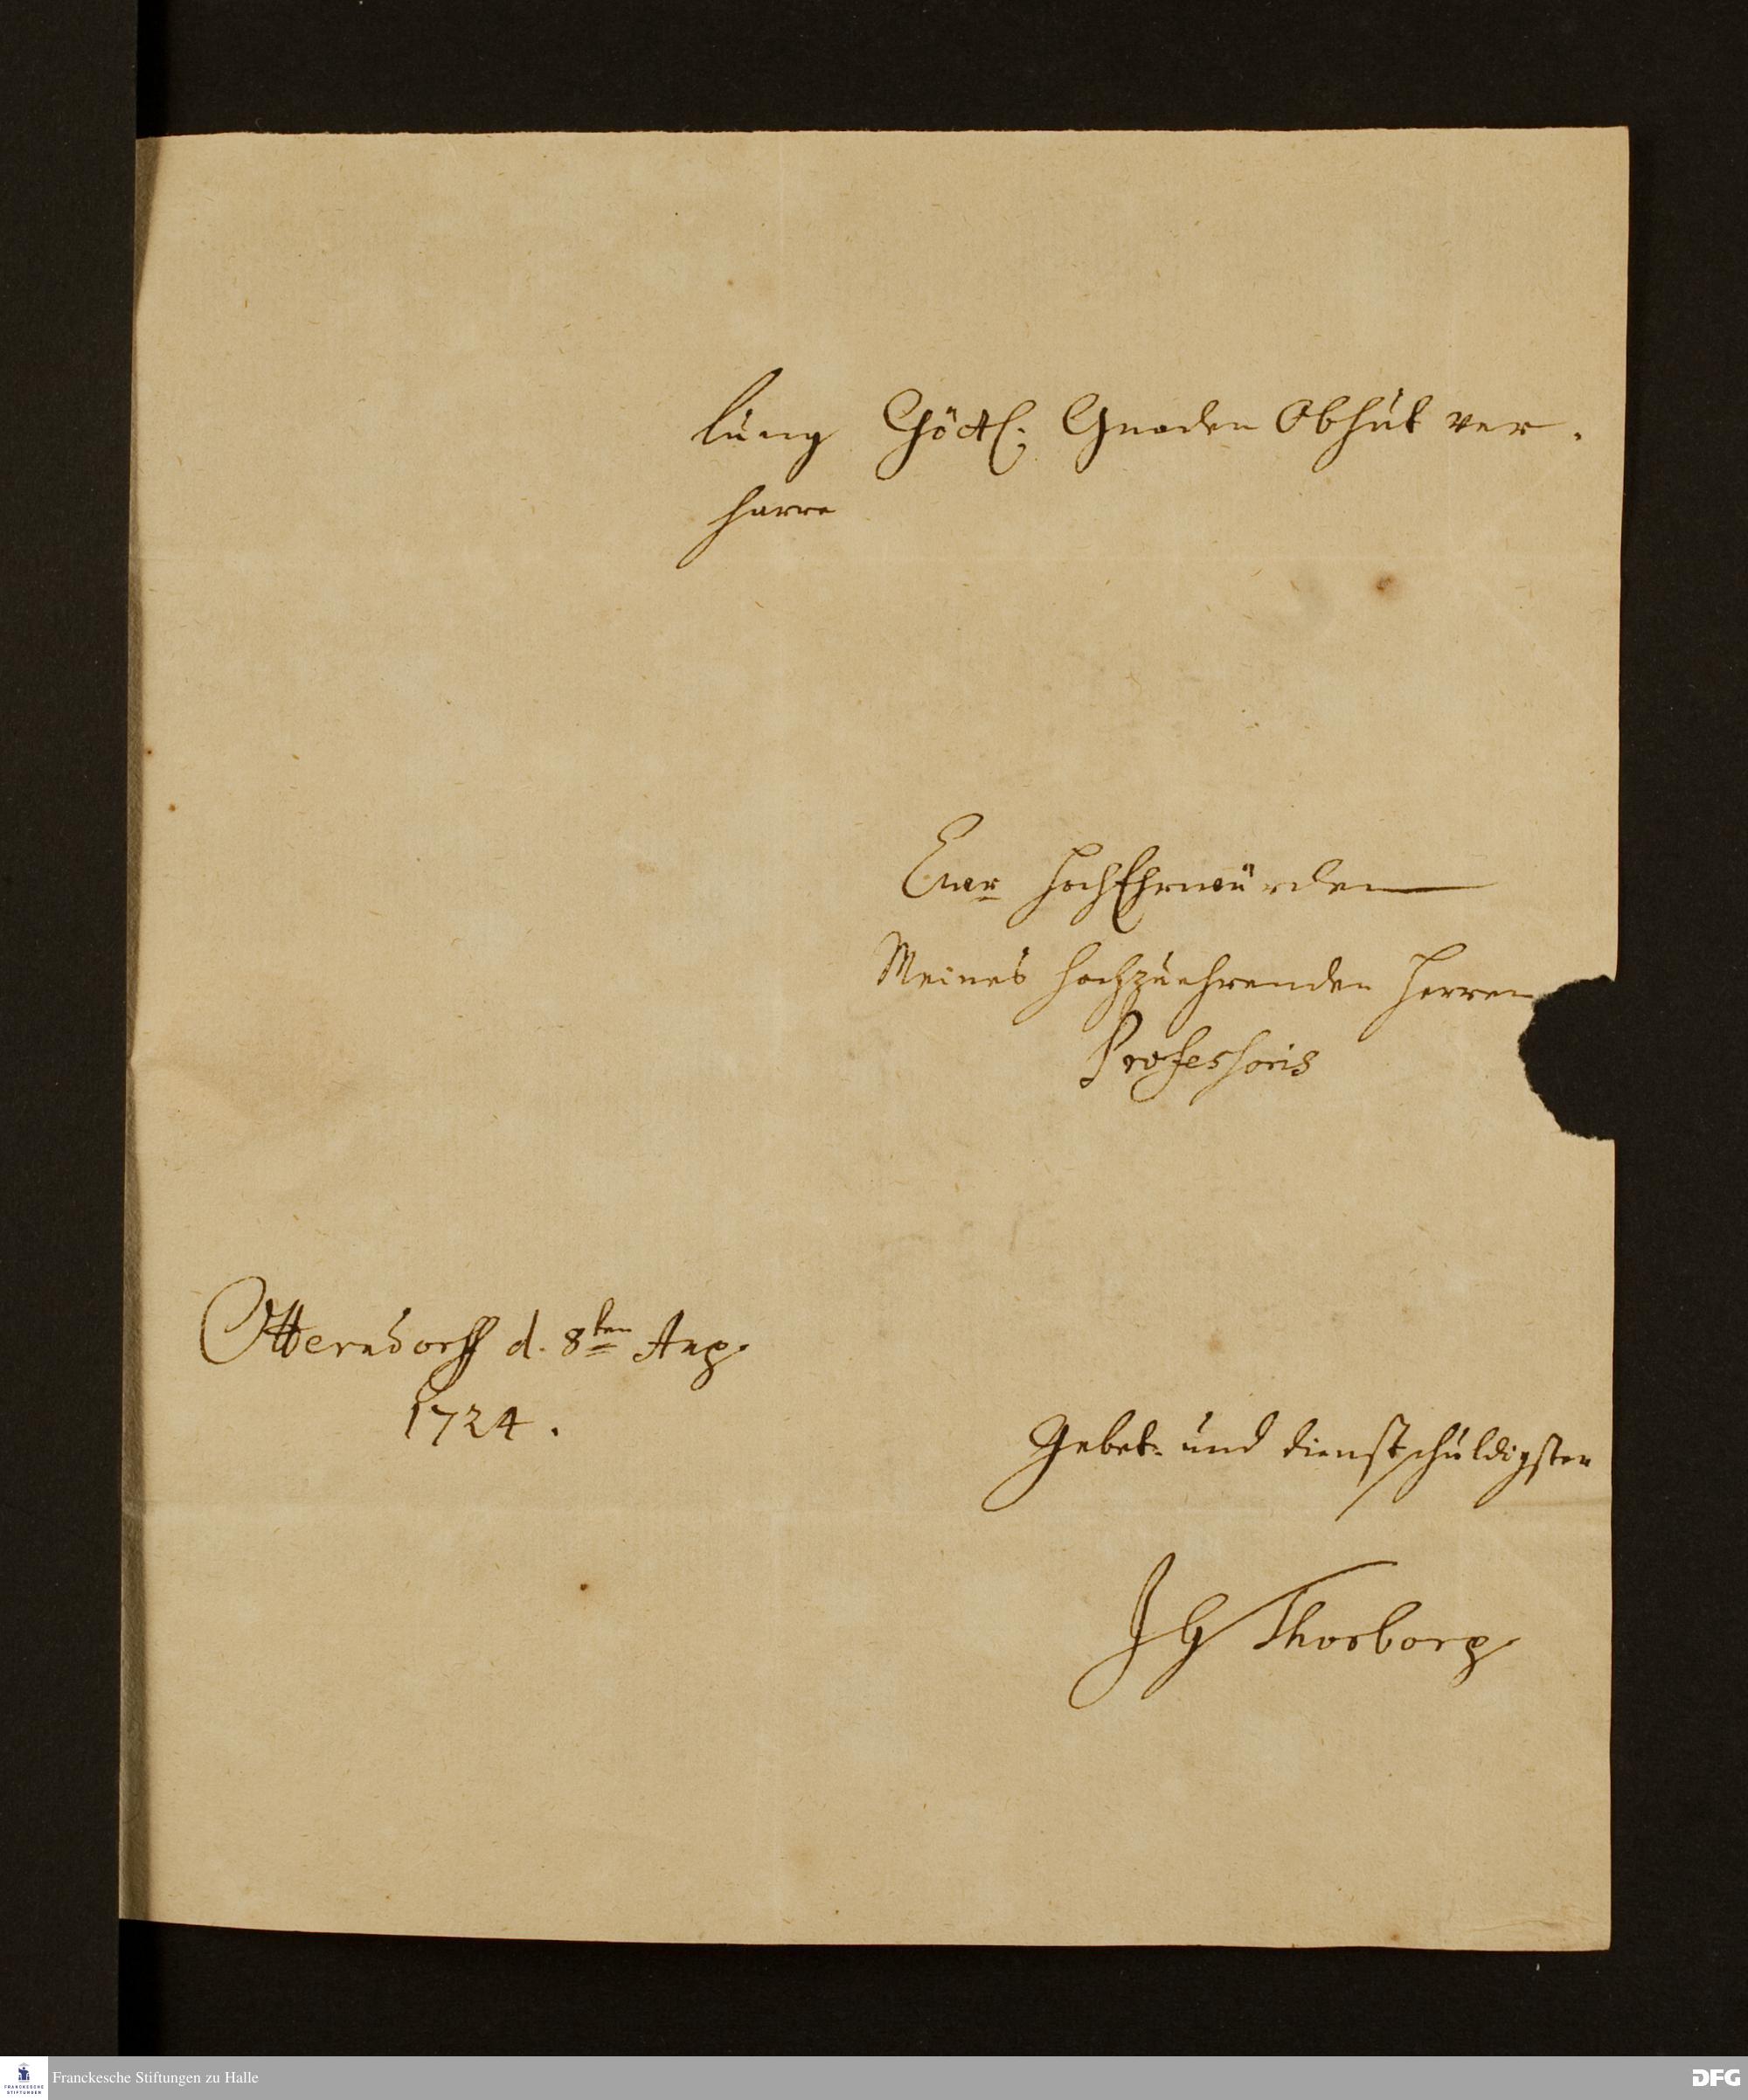 lung Göttl. Gnaden Obhut ver-
harre
Ewr HochEhrwürden
Meines hochzuehrenden Herren
Professoris
Otterndorff d. 8ten Aug.
1724.
Gebet- und dienstschuldigster
JG Thorborg
Franckesche Stiftungen zu Halle
DFG